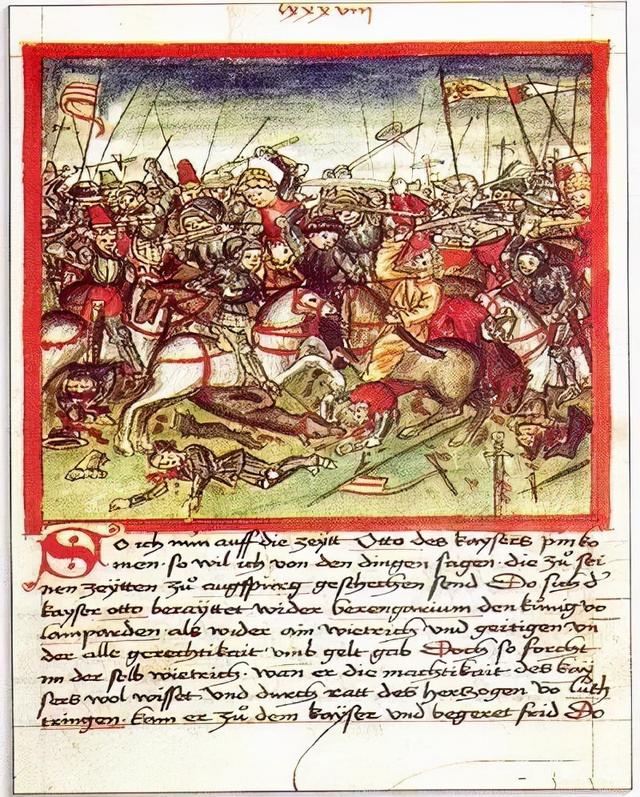 lxxxxviii
So ich nun auff die zeÿtt Otto des kaysers pin ko
men · so wil ich von den dingen sagen · die zů sei
nen zeÿtten zů augspurg geschechen send Do sich d'
kayser otto beraÿttet wider berengarium den künig vo
lamparden · als wider ain wietrich vnd geitigen · vn
der alle gerechtikait vmb gelt gab Doch so forcht
in der selb wietrich · wan er die machtikait · des kaÿ
sers wol wisset · vnd durch ratt des herczogen vo luth
tringen · kam er zů dem kaÿser vnd begeret frid Do